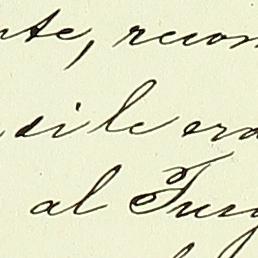 nte, recon
si le era
al Turg